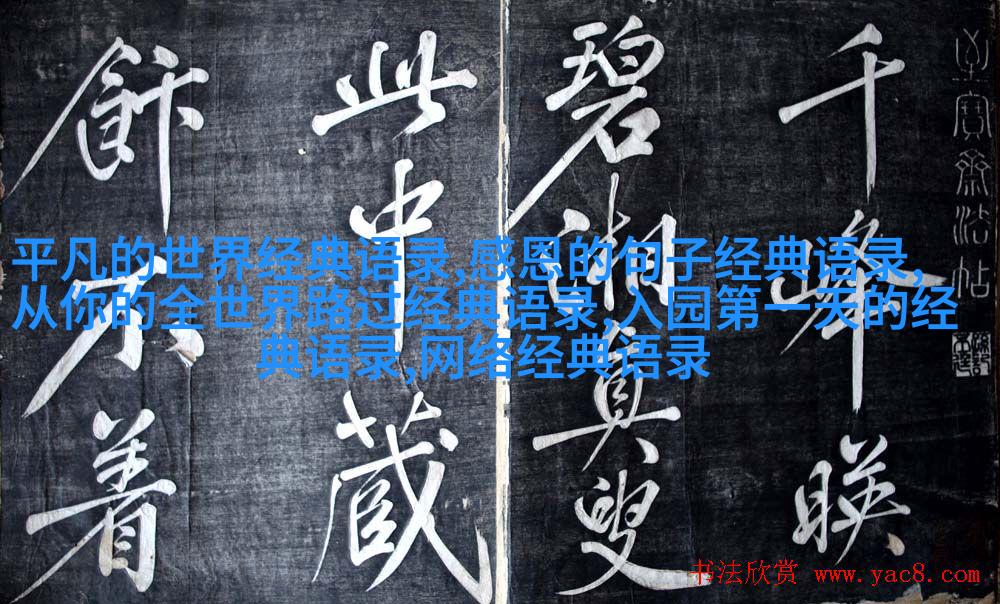 至寶齋法帖
千峰映
碧湘真叟
此中藏
飰不着
平凡的世界经典语录,感恩的句子经典语录,
从你的全世界路过经典语录,入园第一天的经
典语录,网络经典语录
书法欣赏 www.yac8.com